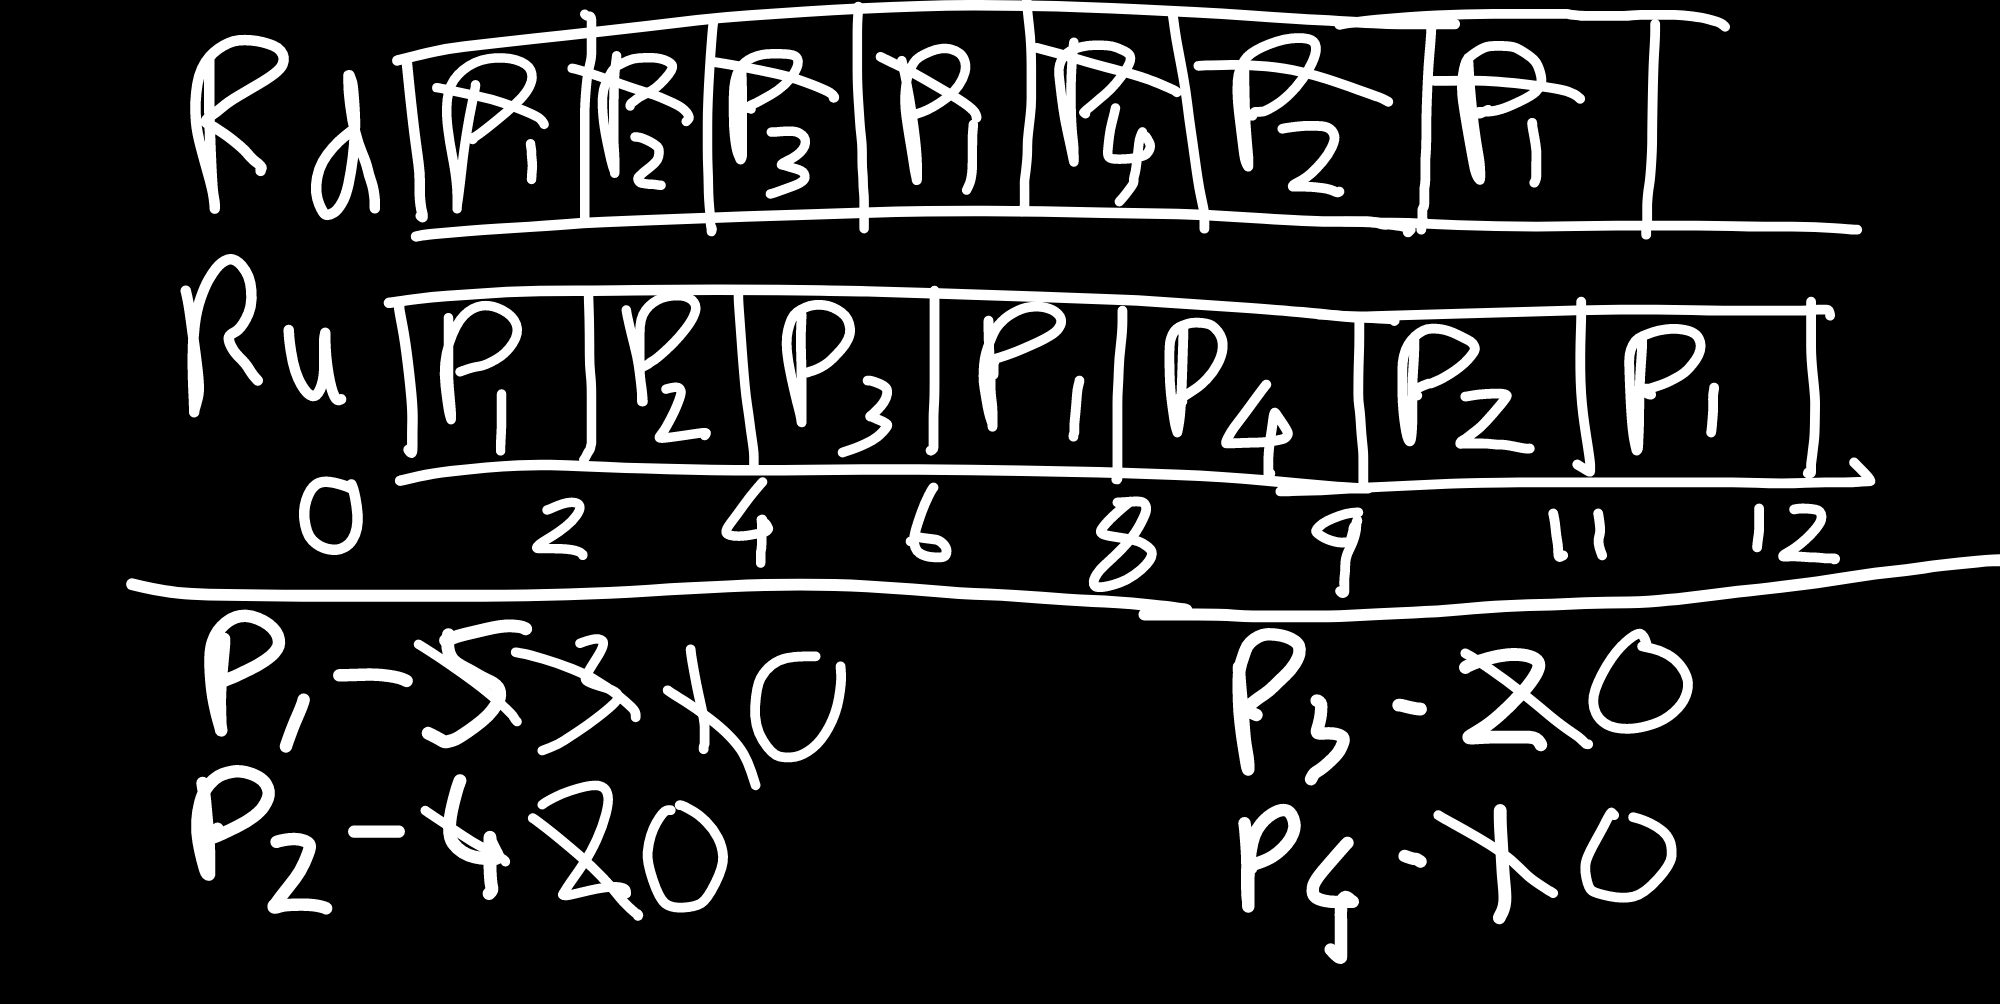 Rd P1 P2 P3 P1 P4 P2 P1
Ru P1 P2 P3 P1 P4 P2 P1
0 2 4 6 8 9 11 12
P1 - 5 3 1 0 P3 - 2 0
P2 - 4 2 0 P4 - 1 0